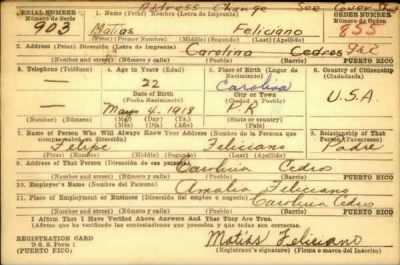 Address Change See Cover
SERIAL NUMBER 1. Name (Print) Nombre (Letra de Imprenta) ORDER NUMBER
Número de Serie Número de Orden
903 Matías Feliciano 855
(First) (Primer Nombre) (Middle) (Segundo) (Last) (Apellido)
2. Address (Print) Dirección (Letra de Imprenta)
Carolina Cedros
(Number and street) (Número y calle) (Barrio) PUERTO RICO
3. Telephone (Teléfono) 4. Age in Years (Edad) 5. Place of Birth (Lugar de Nacimiento) 6. Country of Citizenship (Ciudadanía)
— 22 Carolina
Date of Birth City or Town
(Fecha Nacimiento) (Ciudad o Pueblo) U.S.A.
May 4, 1918 P.R
(Mo.) (Day) (Yr.) State or country
7. Name of Person Who Will Always Know Your Address (Nombre de la Persona que 8. Relationship of That Person (Parentesco)
Felipe Feliciano Padre
(First) (Nombre) (Middle) (Segundo) (Last) (Apellido)
9. Address of That Person (Dirección de esa persona)
Carolina Cedro
(Number and street) (Número y calle) (Barrio) PUERTO RICO
10. Employer's Name (Nombre del Patrono)
Amalia Feliciano
11. Place of Employment or Business (Lugar de empleo o negocio)
Carolina Cedro
(Number and street) (Número y calle) (Barrio) PUERTO RICO
I Affirm That I Have Verified Above Answers And That They Are True.
(Afirmo que he verificado las contestaciones que preceden y que todas son correctas.
REGISTRATION CARD
D. S. S. Form 1
(PUERTO RICO) Matías Feliciano
(Registrant's signature) (Firma o marca del Inscrito)